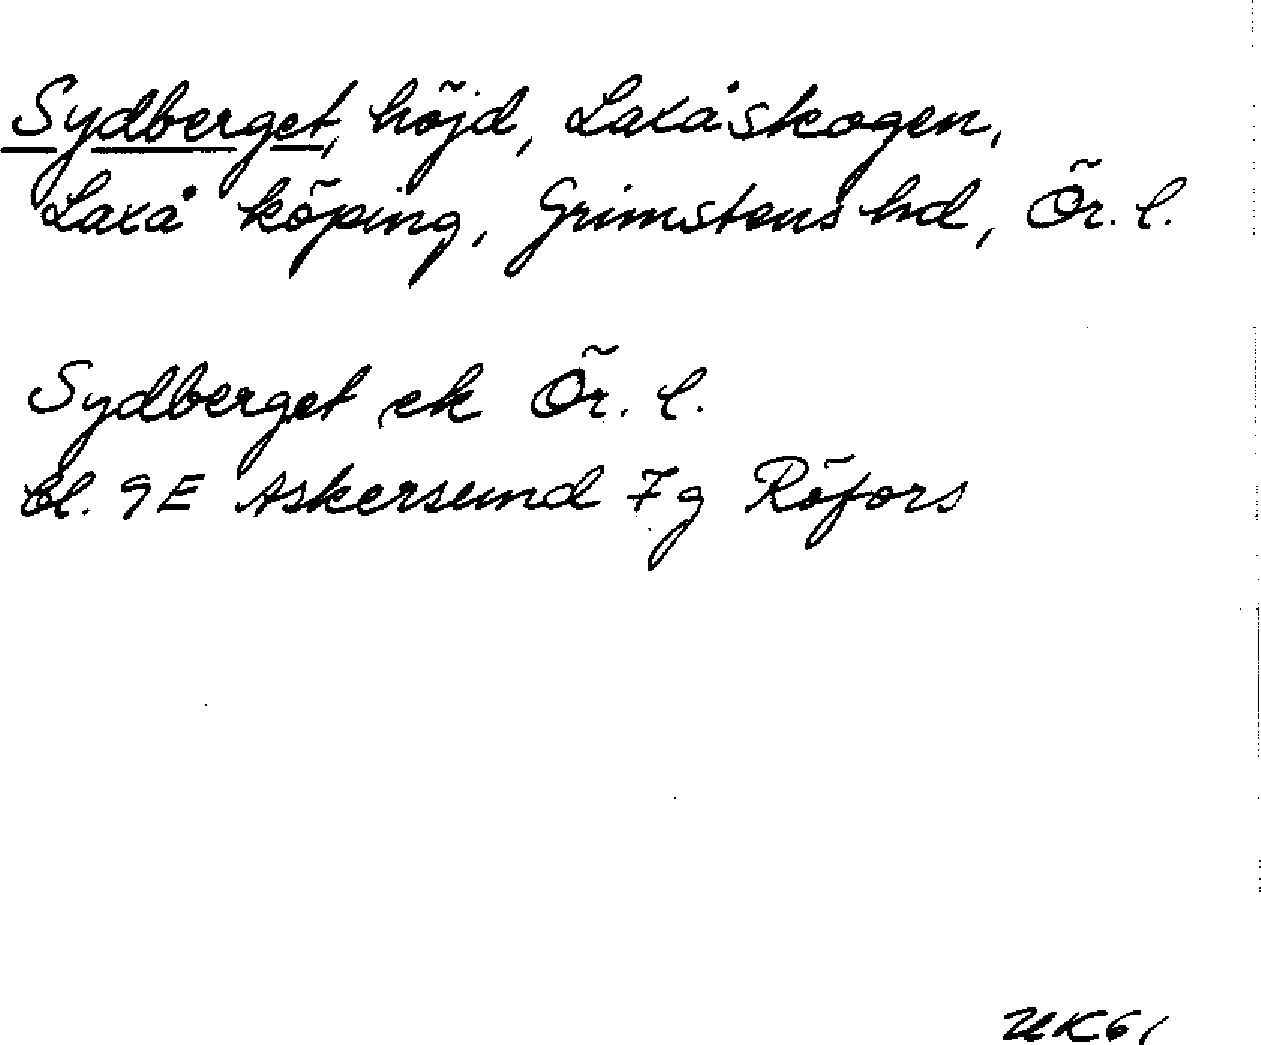 Sydberget, höjd, Laxåskogen,
Laxå köping, Grimstens hd, Ör. l.
Sydberget ek Ör. l.
bl. 9E Askersund 7g Röfors
UK61